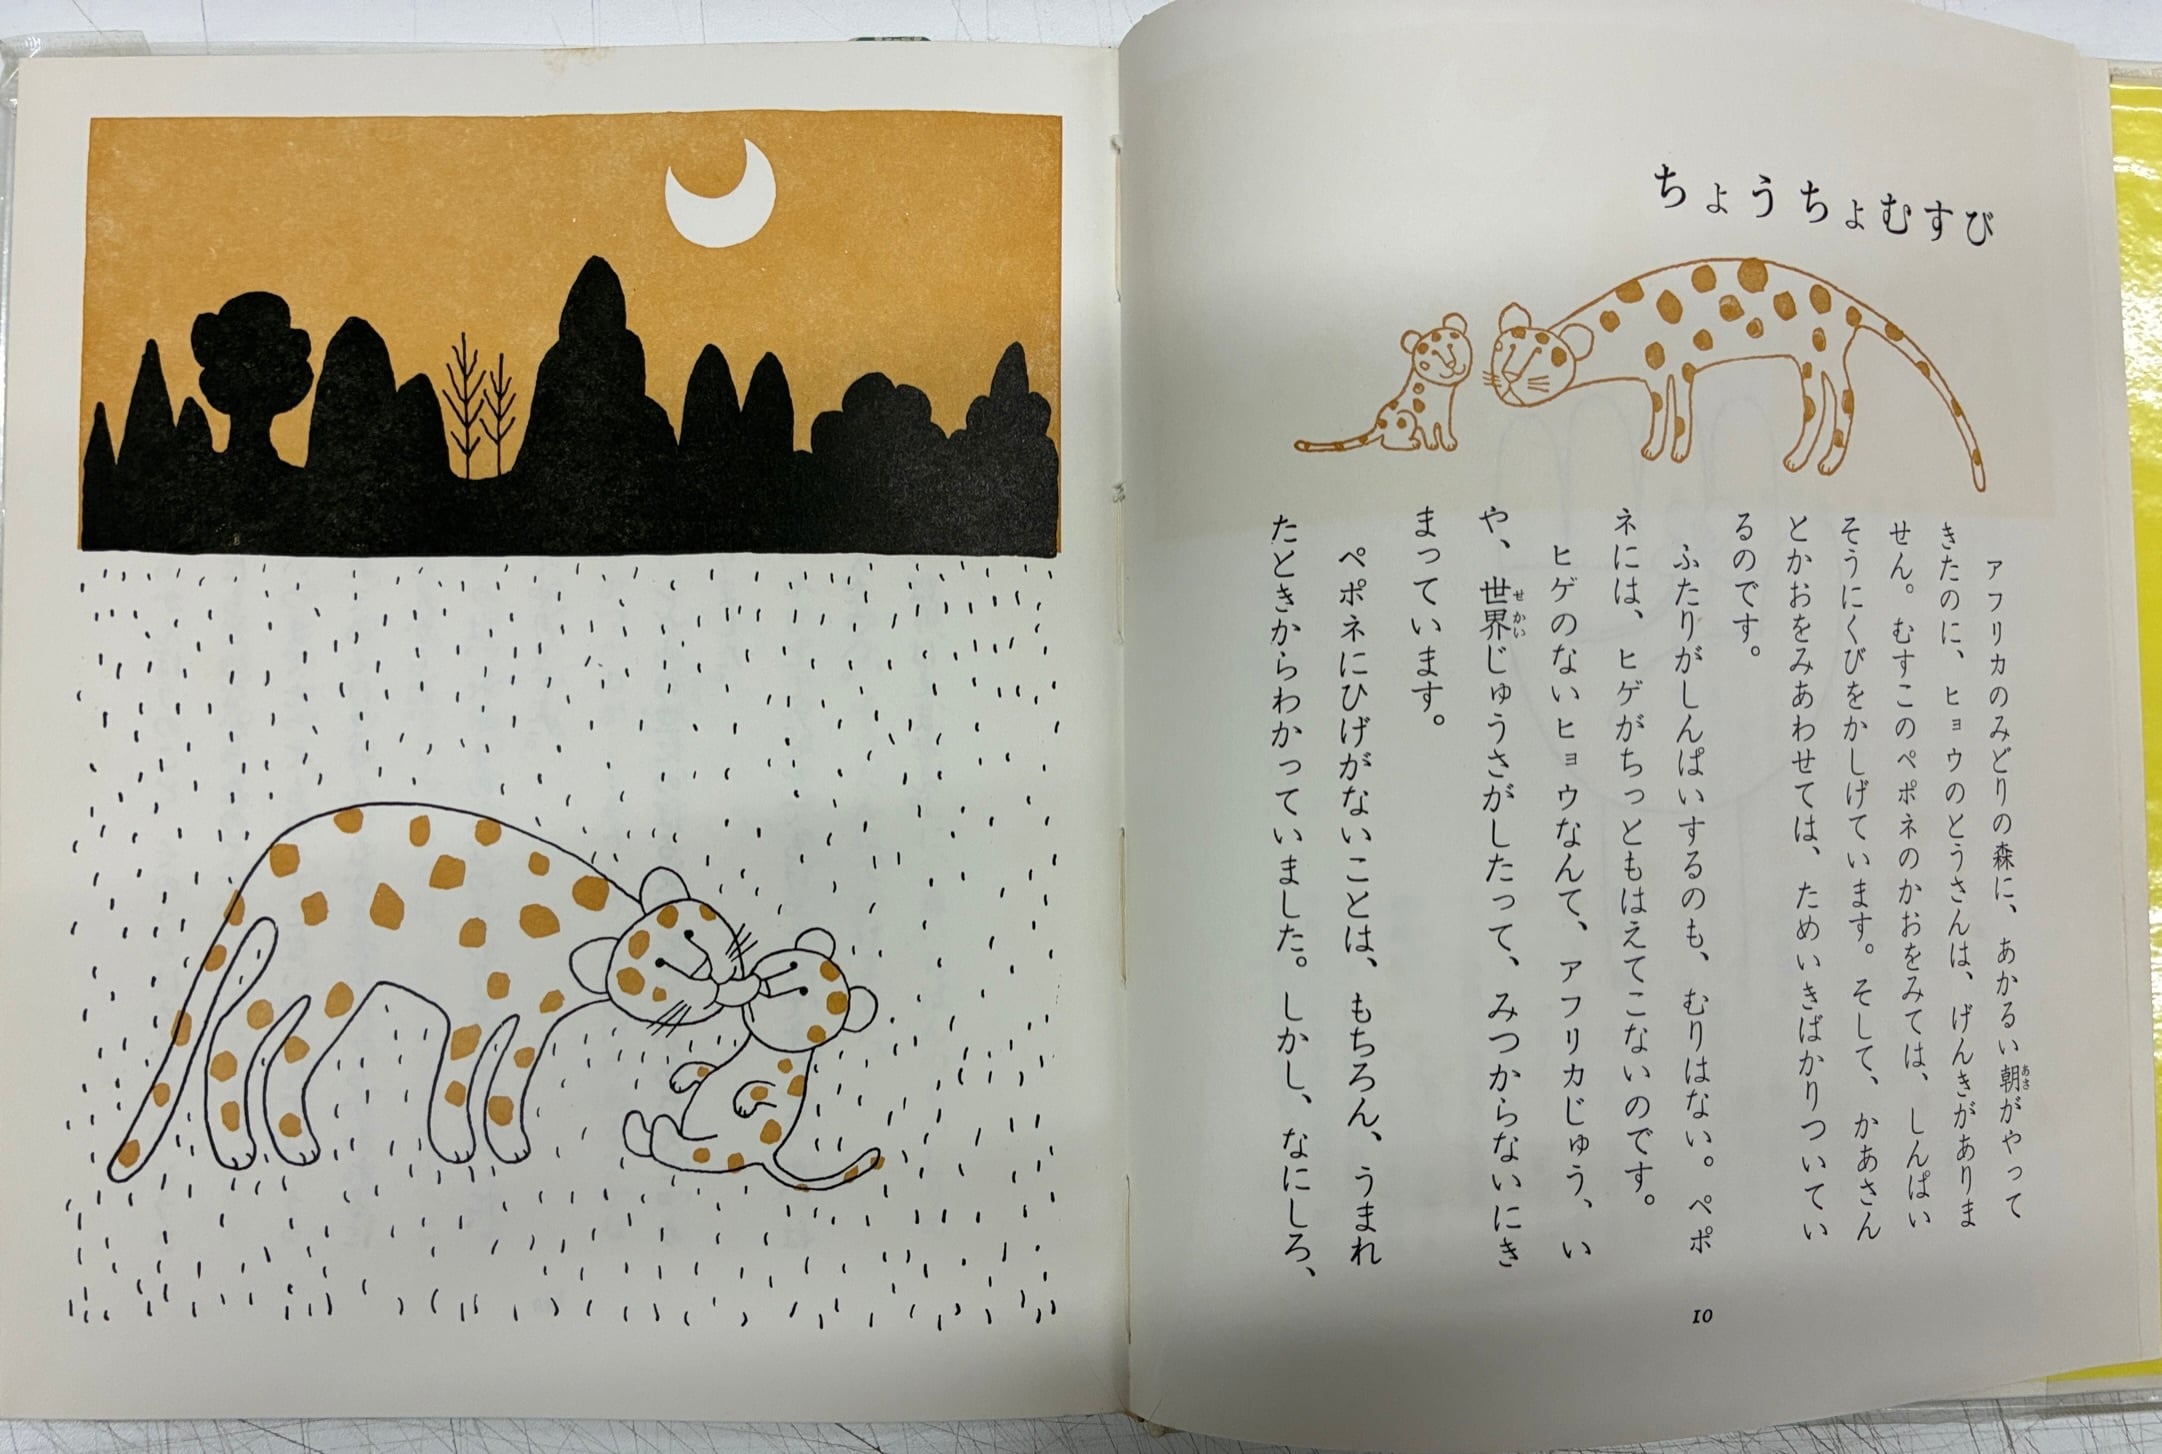 ちょうちょむすび
アフリカのみどりの森に、あかるい朝がやって
きたのに、ヒョウのとうさんは、げんきがありま
せん。むすこのペポネのかおをみては、しんぱい
そうにくびをかしげています。そして、かあさん
とかおをみあわせては、ためいきばかりついてい
るのです。
ふたりがしんぱいするのも、むりはない。ペポ
ネには、ヒゲがちっともはえてこないのです。
ヒゲのないヒョウなんて、アフリカじゅう、い
や、世界じゅうさがしたって、みつからないにき
まっています。
ペポネにひげがないことは、もちろん、うまれ
たときからわかっていました。しかし、なにしろ、
10